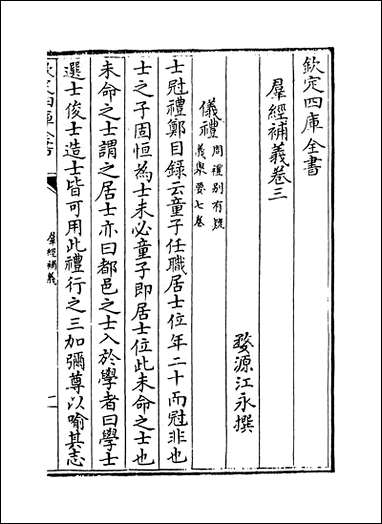 欽定四庫全書
羣經補義卷三
婺源江永撰
儀禮周禮別有疑義舉要七卷
士冠禮鄭目錄云童子任職居士位年二十而冠非也
士之子固恒為士未必童子即居士位此未命之士也
未命之士謂之居士亦曰都邑之士入於學者曰學士
選士俊士造士皆可用此禮行之三加彌尊以喻其志
欽定四庫全書
羣經補義
一